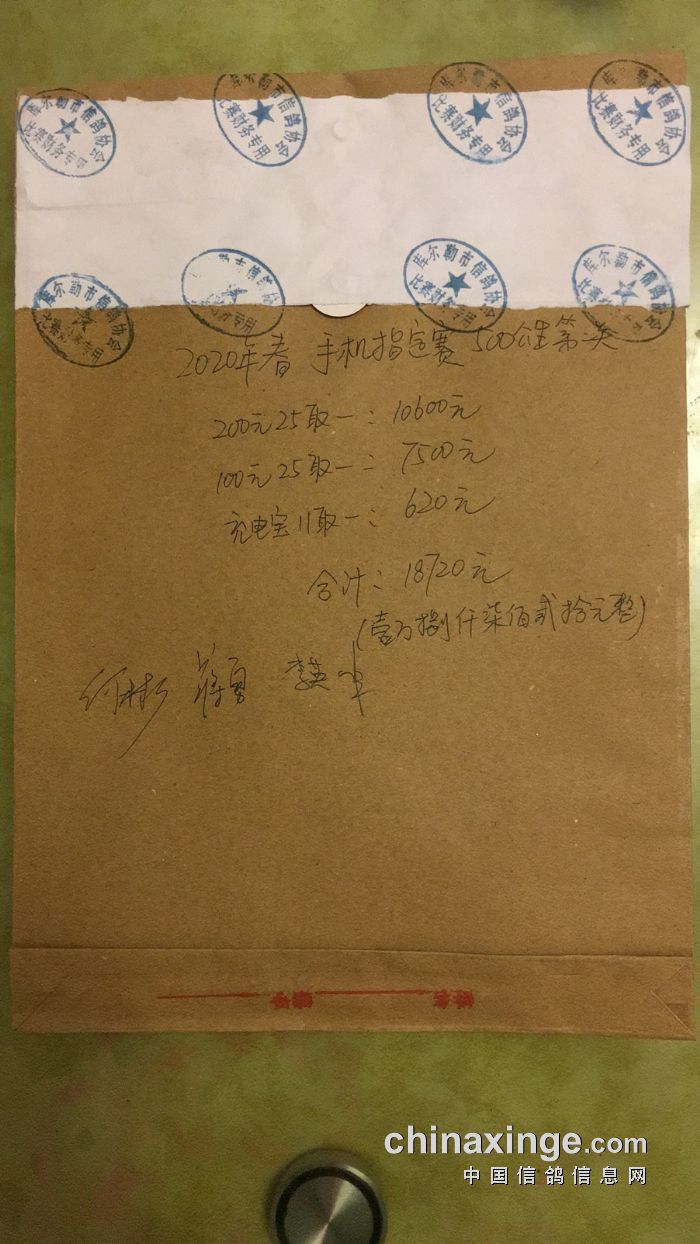 库尔勒市信鸽协会
比赛财务专用
库尔勒市信鸽协会
比赛财务专用
库尔勒市信鸽协会
比赛财务专用
库尔勒市信鸽协会
比赛财务专用
库尔勒市信鸽协会
比赛财务专用
市信鸽协会
专用
库尔勒市信鸽协会
比赛财务专用
库尔勒市信鸽协会
比赛
2020年春 手机指定赛 500公里
200元25取一：10600元
100元25取一：7500元
充电宝11取一：620元
合计：18720元
(壹万捌仟柒佰贰拾元整)
何彬 蒋勇
chinaxinge.com
中国信鸽信息网